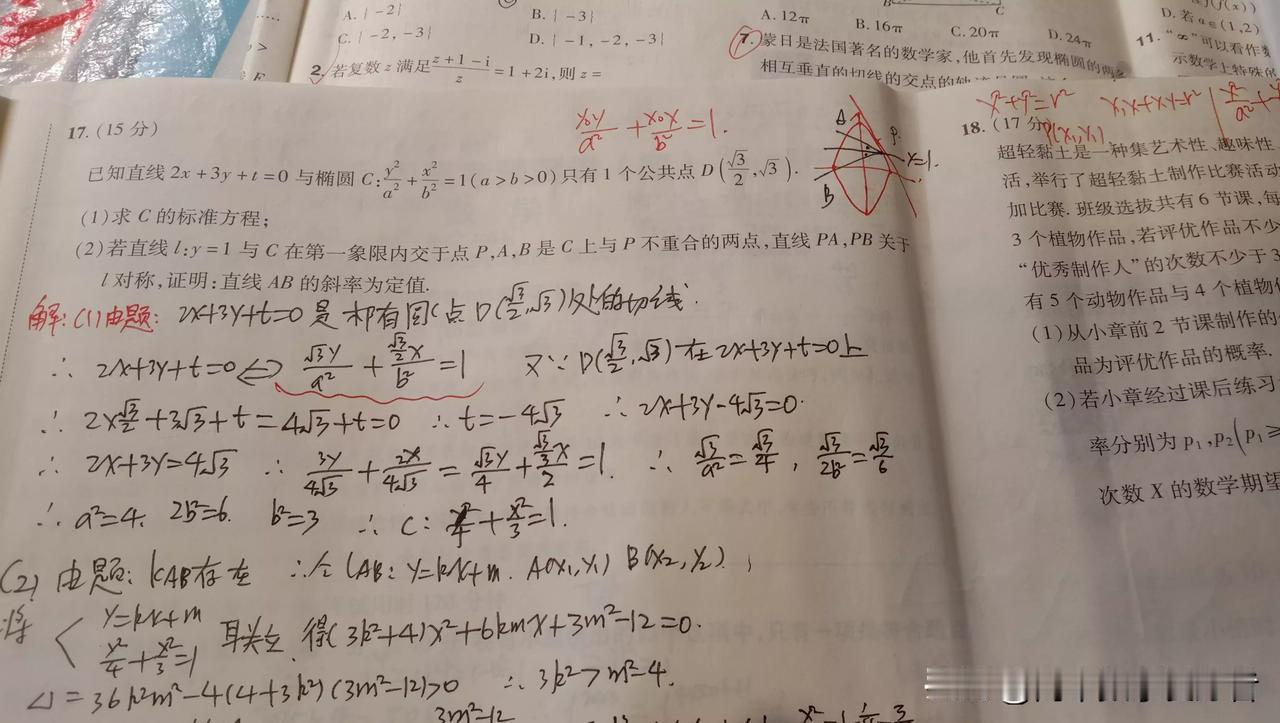 A.{-2}
B.{-3}
C.{-2,-3}
D.{-1,-2,-3}
2. 若复数z满足(z+1-i)/z=1+2i,则z=
A.12π
B.16π
C.20π
D.24π
7. 蒙日是法国著名的数学家,他首先发现椭圆的两
相互垂直的切线的交点的轨迹
D.若a∈(1,2)
11.“∞”可以看作
示数学上特殊的
17.(15分)
y₀y/a²+x₀x/b²=1.
已知直线2x+3y+t=0与椭圆C:y²/a²+x²/b²=1(a>b>0)只有1个公共点D(√3/2,√3).
A
P.
y=1.
B
(1)求C的标准方程;
(2)若直线l:y=1与C在第一象限内交于点P,A,B是C上与P不重合的两点,直线PA,PB关于
l对称,证明:直线AB的斜率为定值.
解:(1)由题: 2x+3y+t=0是椭圆C点D(√3/2,√3)处的切线.
∴ 2x+3y+t=0⇔√3y/a²+(√3/2)x/b²=1 又∵D(√3/2,√3)在2x+3y+t=0上
∴ 2×√3/2+3√3+t=4√3+t=0 ∴t=-4√3 ∴2x+3y-4√3=0.
∴ 2x+3y=4√3 ∴ 3y/4√3+2x/4√3=√3y/4+(√3/3)x/2=1. ∴ √3/a²=√3/4, √3/2b²=√3/6
∴ a²=4. 2b²=6. b²=3 ∴ C: y²/4+x²/3=1.
(2) 由题: kAB存在 ∴令lAB: y=kx+m. A(x₁,y₁) B(x₂,y₂).
将 { y=kx+m
y²/4+x²/3=1 联立 得(3k²+4)x²+6kmx+3m²-12=0.
Δ=36k²m²-4(4+3k²)(3m²-12)>0 ∴ 3k²>m²-4.
3m²-12
x²+y²=r²
x₁x+y₁y=r²
P(x₁,y₁)
18.(17分)
超轻黏土是一种集艺术性、趣味性
活,举行了超轻黏土制作比赛活动
加比赛.班级选拔共有6节课,每
3个植物作品,若评优作品不少
“优秀制作人”的次数不少于3
有5个动物作品与4个植物
(1)从小章前2节课制作的
品为评优作品的概率.
(2)若小章经过课后练习
率分别为p₁,p₂(p₁≥
次数X的数学期望